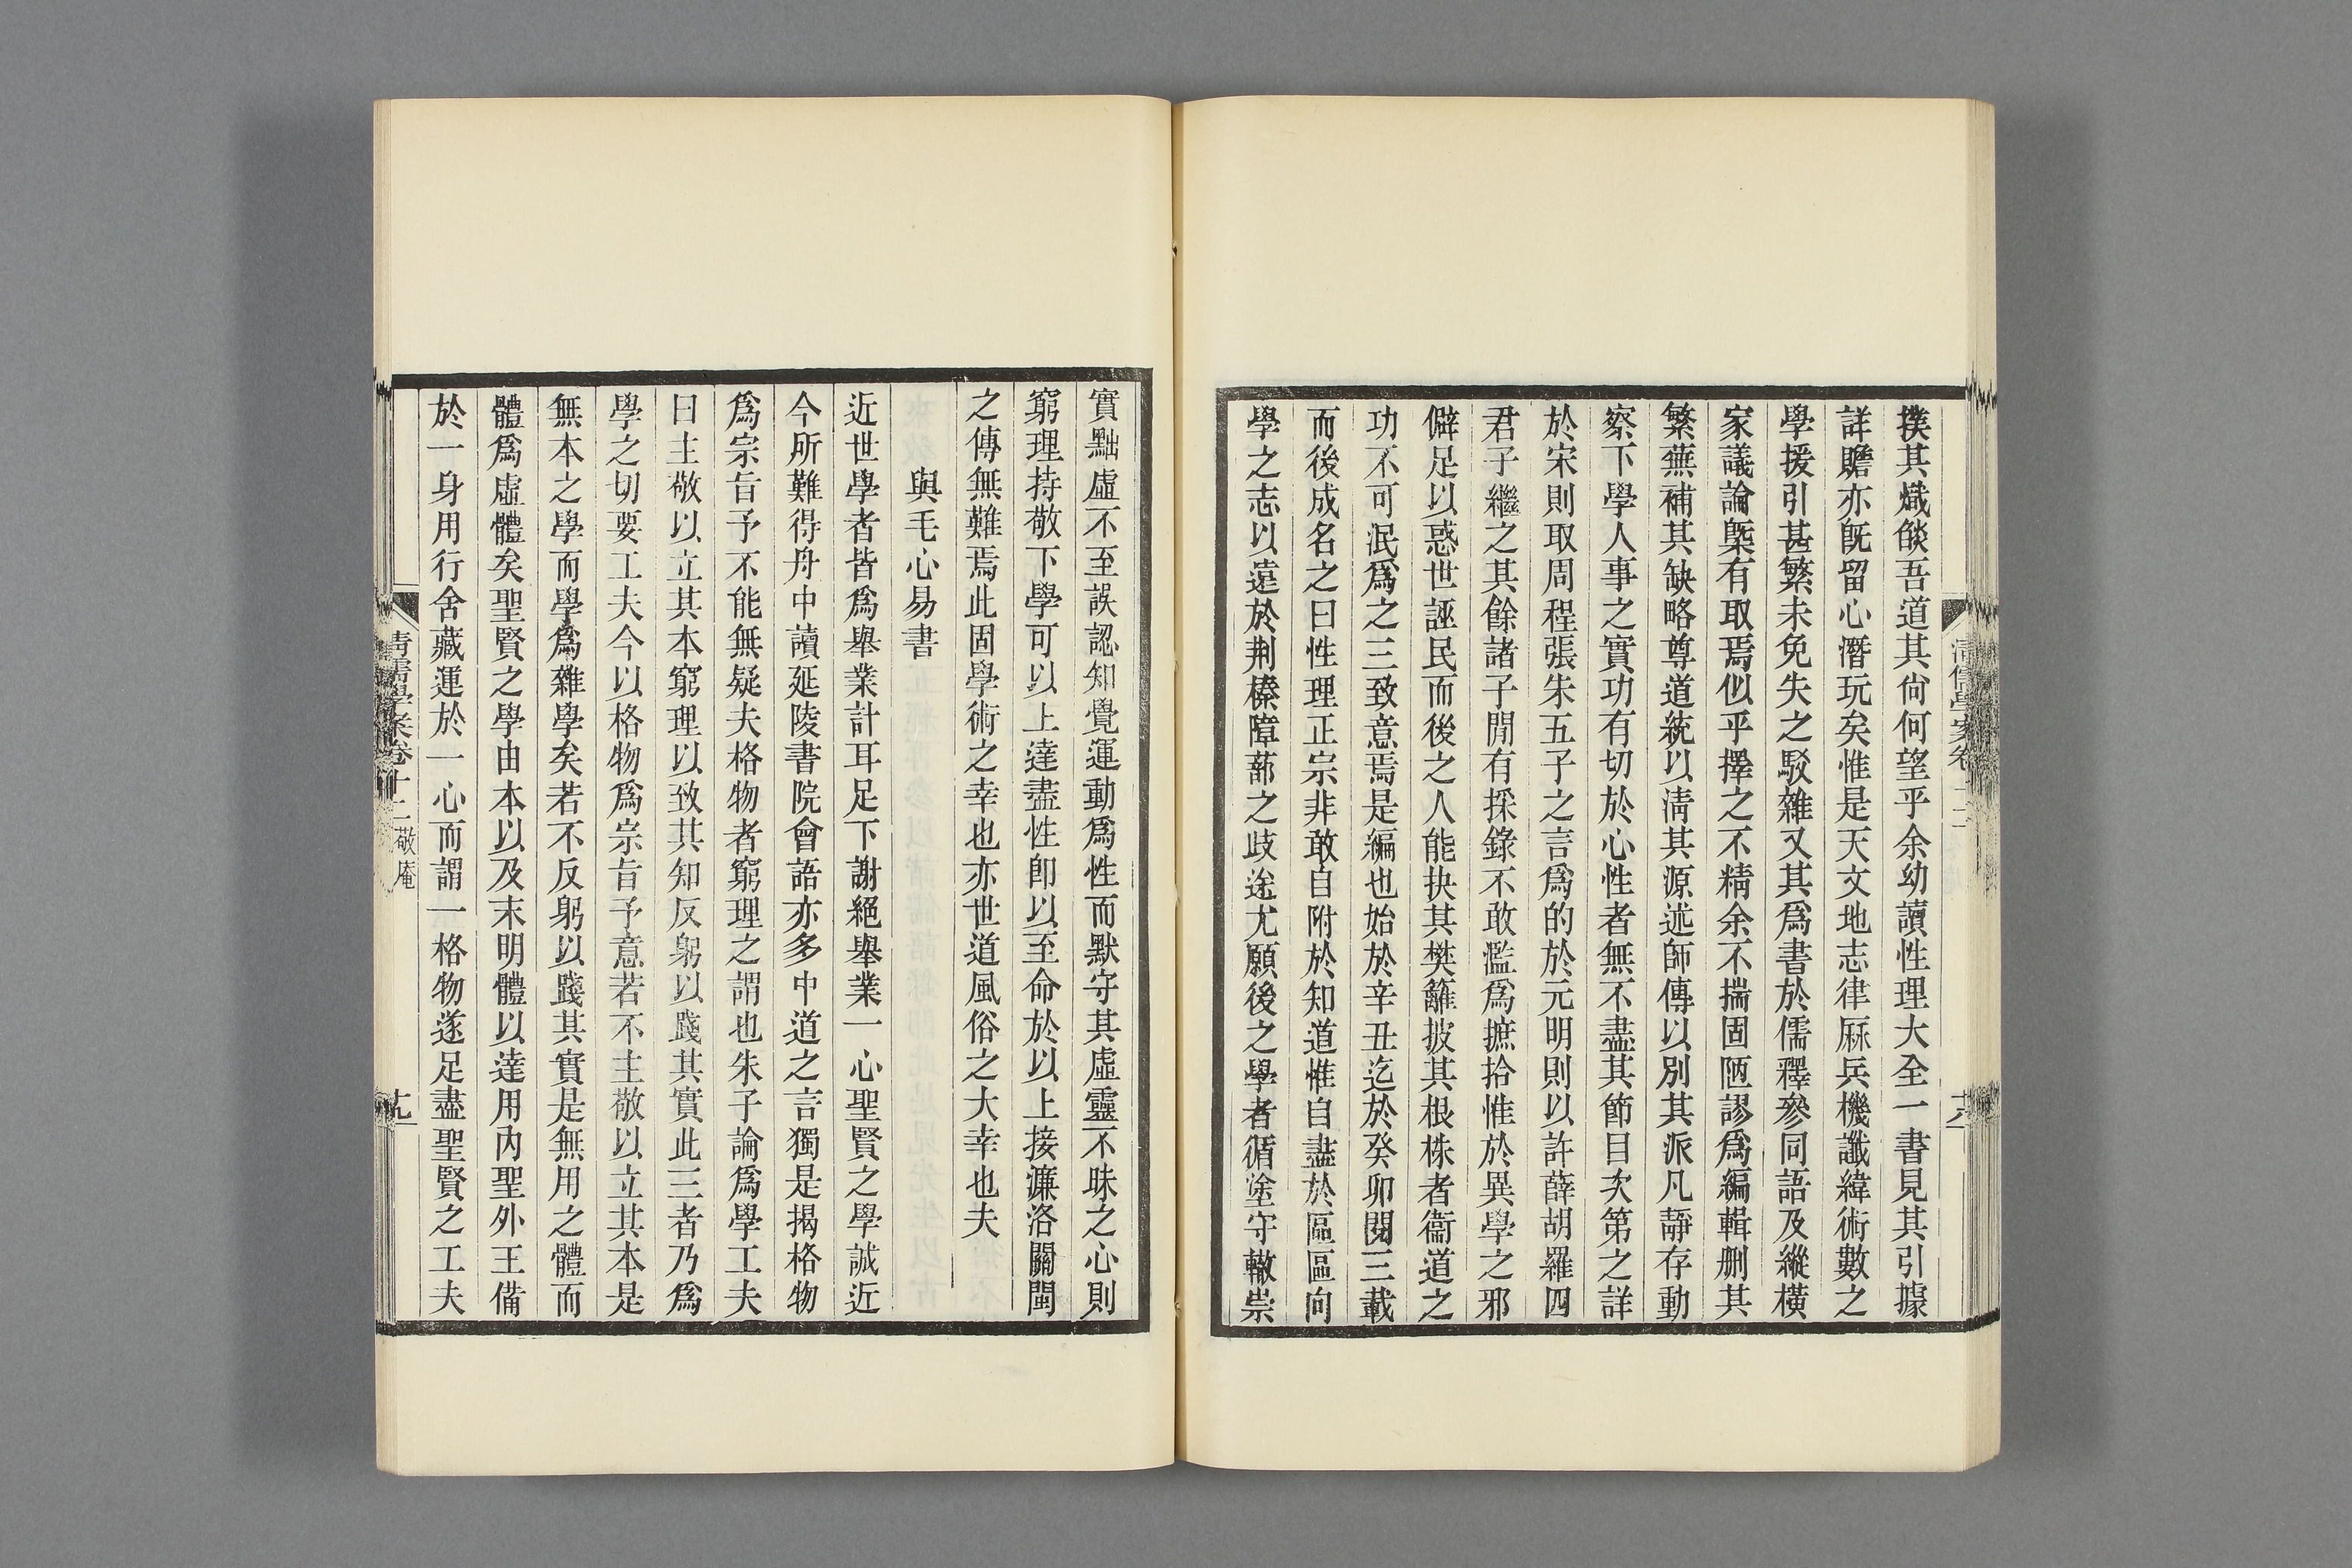 撲其熾燄吾道其尙何望乎余幼讀性理大全一書見其引據
詳贍亦旣留心潛玩矣惟是天文地志律厤兵機讖緯術數之
學援引甚繁未免失之駁雜又其爲書於儒釋參同語及縱橫
家議論槩有取焉似乎擇之不精余不揣固陋謬爲編輯刪其
繁蕪補其缺略尊道統以淸其源述師傳以別其派凡靜存動
察下學人事之實功有切於心性者無不盡其節目次第之詳
於宋則取周程張朱五子之言爲的於元明則以許薛胡羅四
君子繼之其餘諸子閒有採錄不敢濫爲摭拾惟於異學之邪
僻足以惑世誣民而後之人能抉其樊籬披其根株者衞道之
功不可泯爲之三致意焉是編也始於辛丑迄於癸卯閱三載
而後成名之曰性理正宗非敢自附於知道惟自盡於區區向
學之志以遠於荆榛障蔀之歧途尤願後之學者循塗守轍崇
淸儒學案卷十二
十八
實黜虛不至誤認知覺運動爲性而默守其虛靈不昧之心則
窮理持敬下學可以上達盡性卽以至命於以上接濂洛關閩
之傳無難焉此固學術之幸也亦世道風俗之大幸也夫
與毛心易書
近世學者皆爲舉業計耳足下謝絕舉業一心聖賢之學誠近
今所難得舟中讀延陵書院會語亦多中道之言獨是揭格物
爲宗旨予不能無疑夫格物者窮理之謂也朱子論爲學工夫
曰主敬以立其本窮理以致其知反躬以踐其實此三者乃爲
學之切要工夫今以格物爲宗旨予意若不主敬以立其本是
無本之學而學爲雜學矣若不反躬以踐其實是無用之體而
體爲虛體矣聖賢之學由本以及末明體以達用內聖外王備
於一身用行舍藏運於一心而謂一格物遂足盡聖賢之工夫
淸儒學案卷十二 敬庵
十九